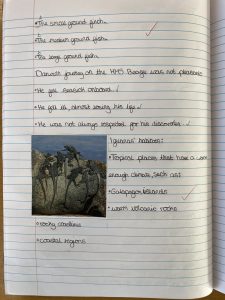 • The small ground finch.
• The medium ground finch.
• The large ground finch.
Darwin's journey on the HMS Beagle was not pleasant:
• He got seasick onboard
• He fell ill, almost losing his life
• He was not always respected for his discoveries
Iguanas habitats:
• Tropical places that have a warm
enough climate, such as:
• Galapagos Islands
• warm volcanic rocks
• rocky coastlines
• coastal regions